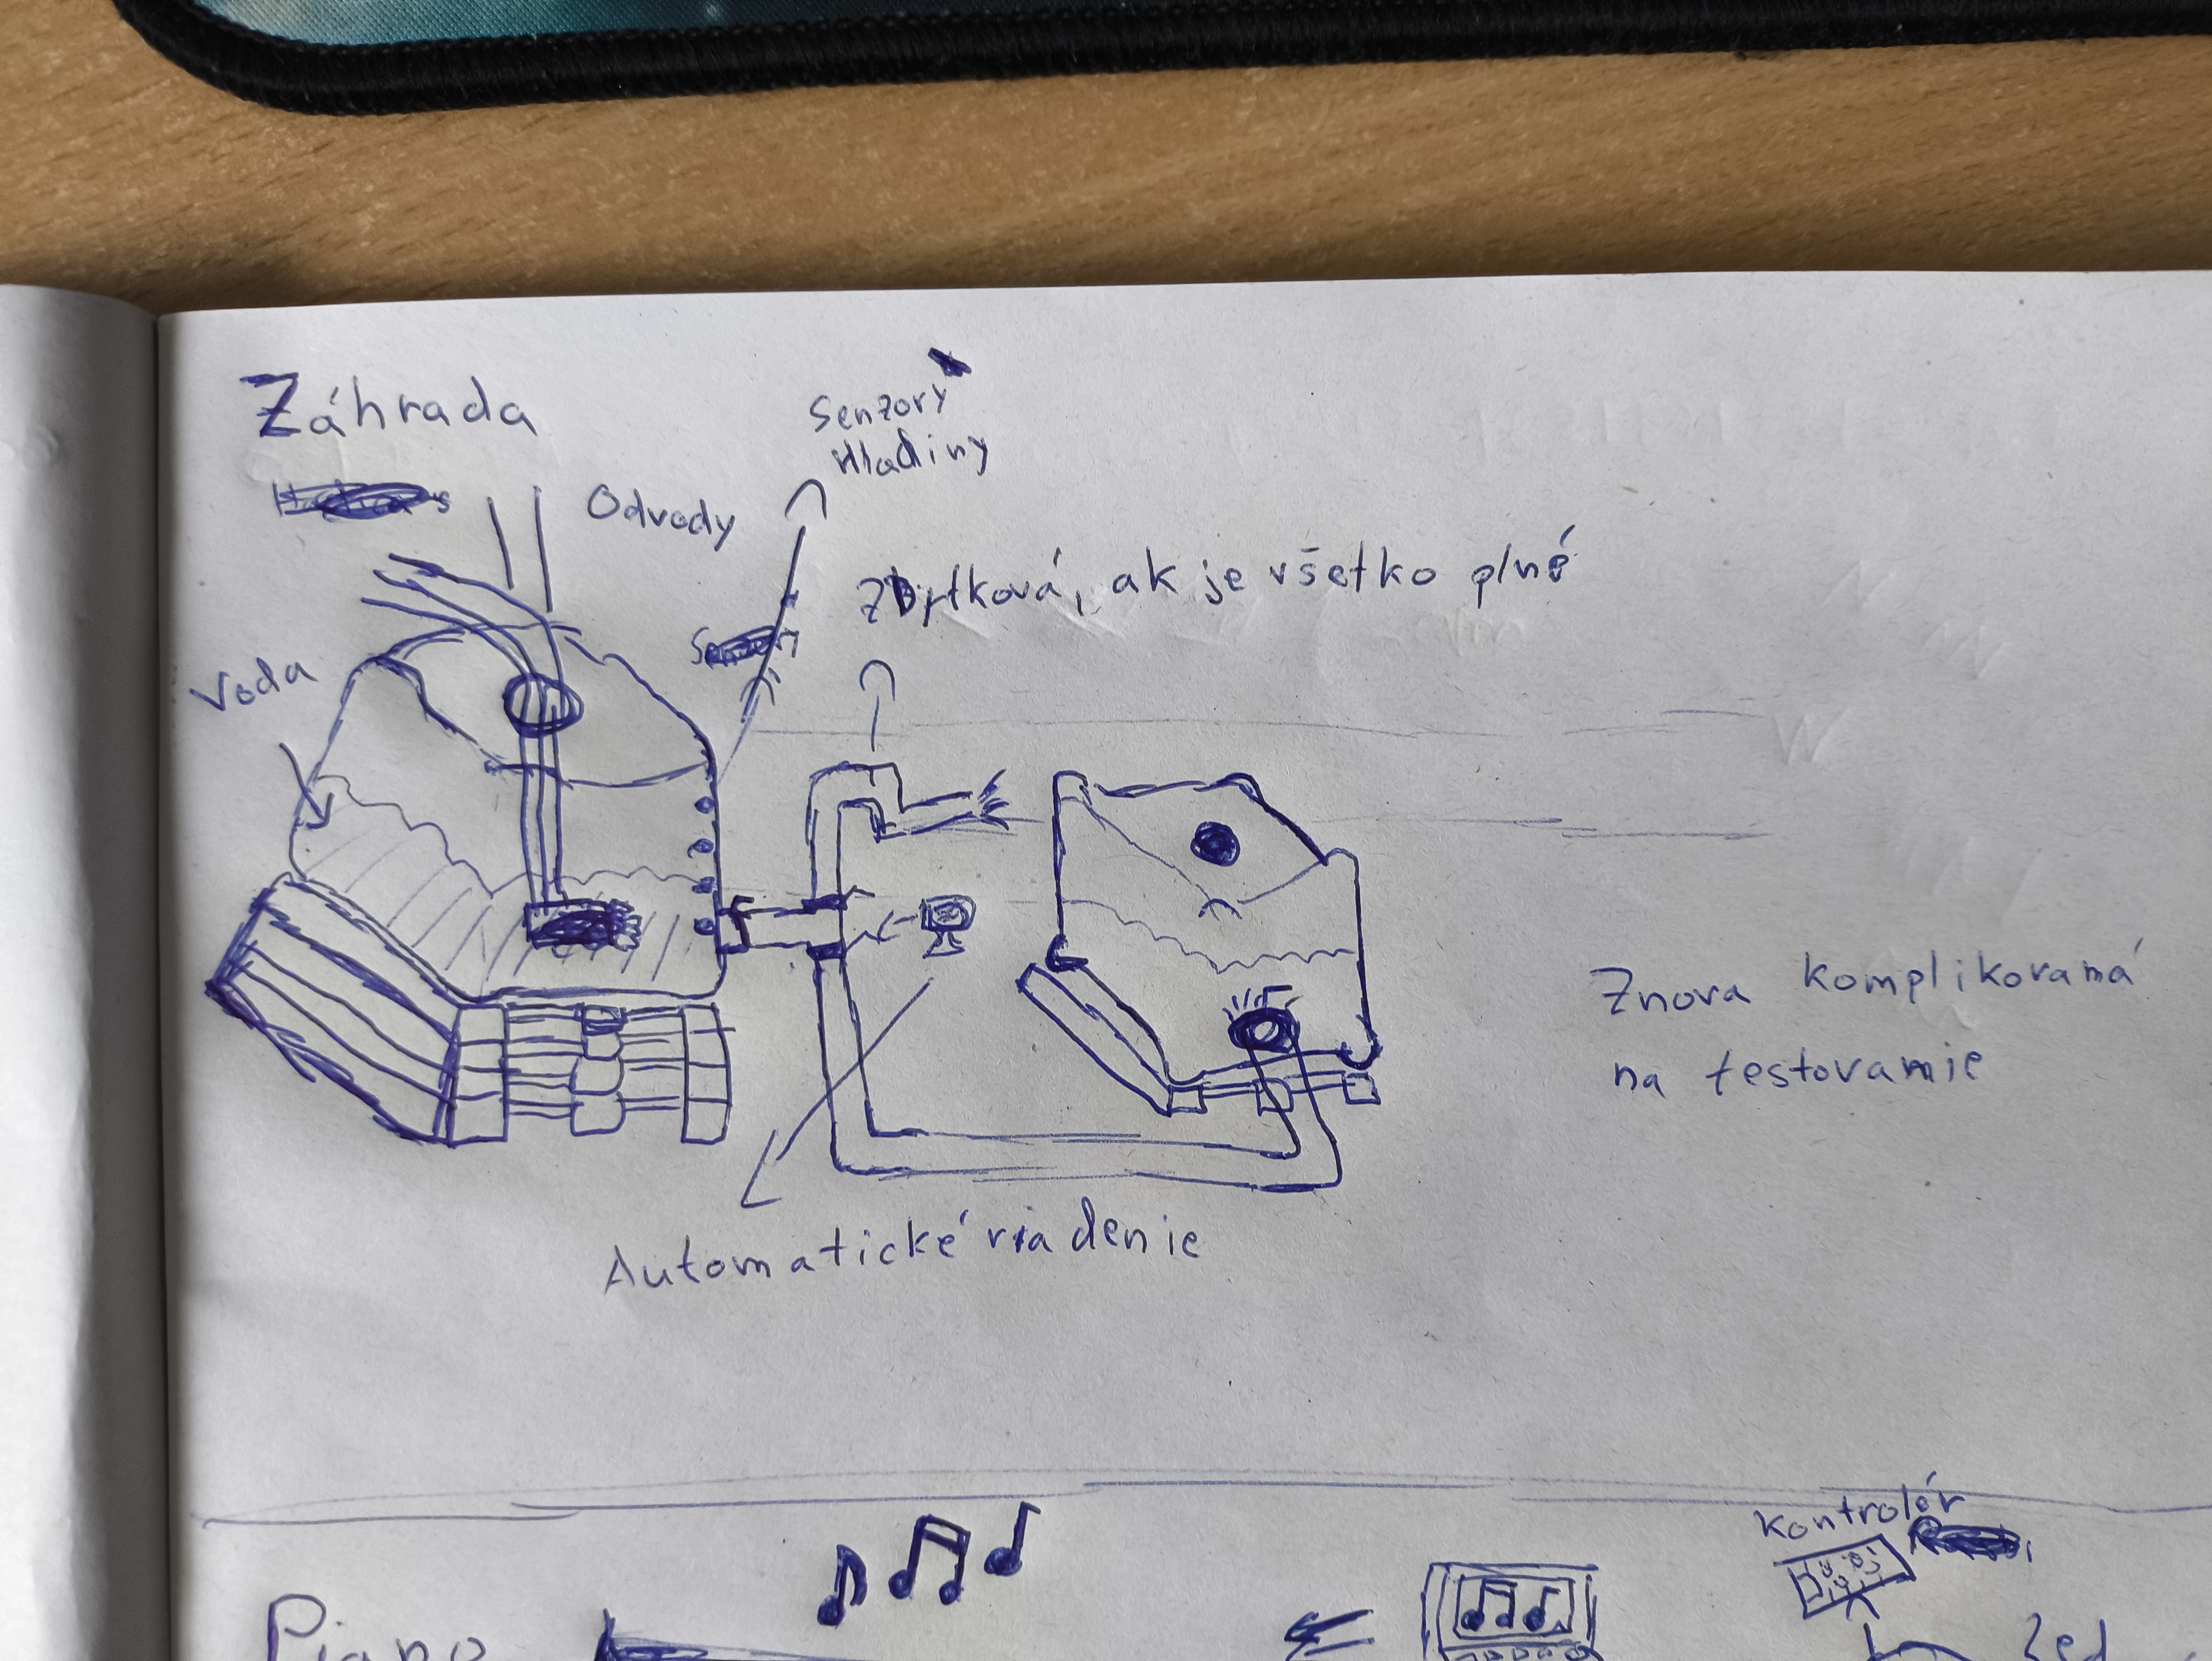 Záhrada
Senzory
Hladiny
Odvody
Zbytková, ak je všetko plné
Voda
Znova komplikovaná
na testovanie
Automatické riadenie
Kontrolér
Piano